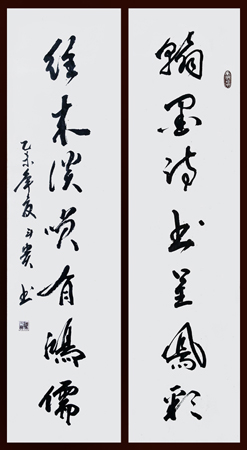 翰墨诗书呈凤彩
往来谈笑有鸿儒
乙未年夏 贵书